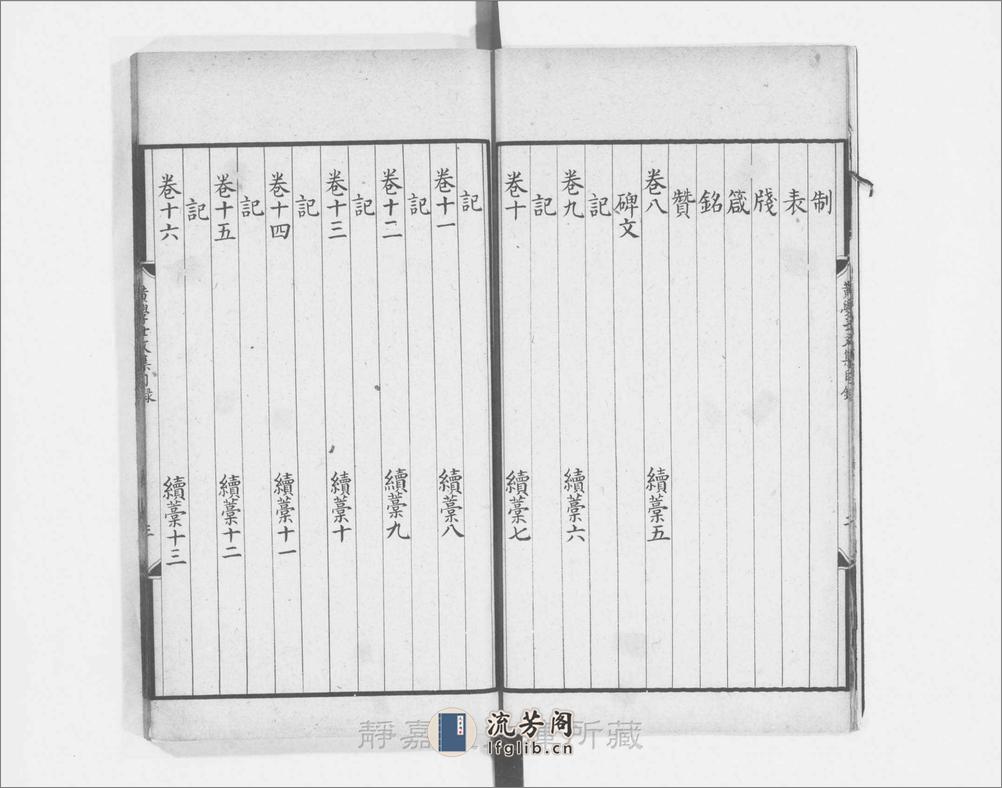 制
表
牋
箴
銘
贊
卷八 續藁五
碑文
記
卷九 續藁六
記
卷十 續藁七
記
卷十一 續藁八
記
卷十二 續藁九
記
卷十三 續藁十
記
卷十四 續藁十一
記
卷十五 續藁十二
記
卷十六 續藁十三
黃學士文集目録
二
黃學士文集目録
三
靜嘉 所藏
流芳阁
lfglib.cn